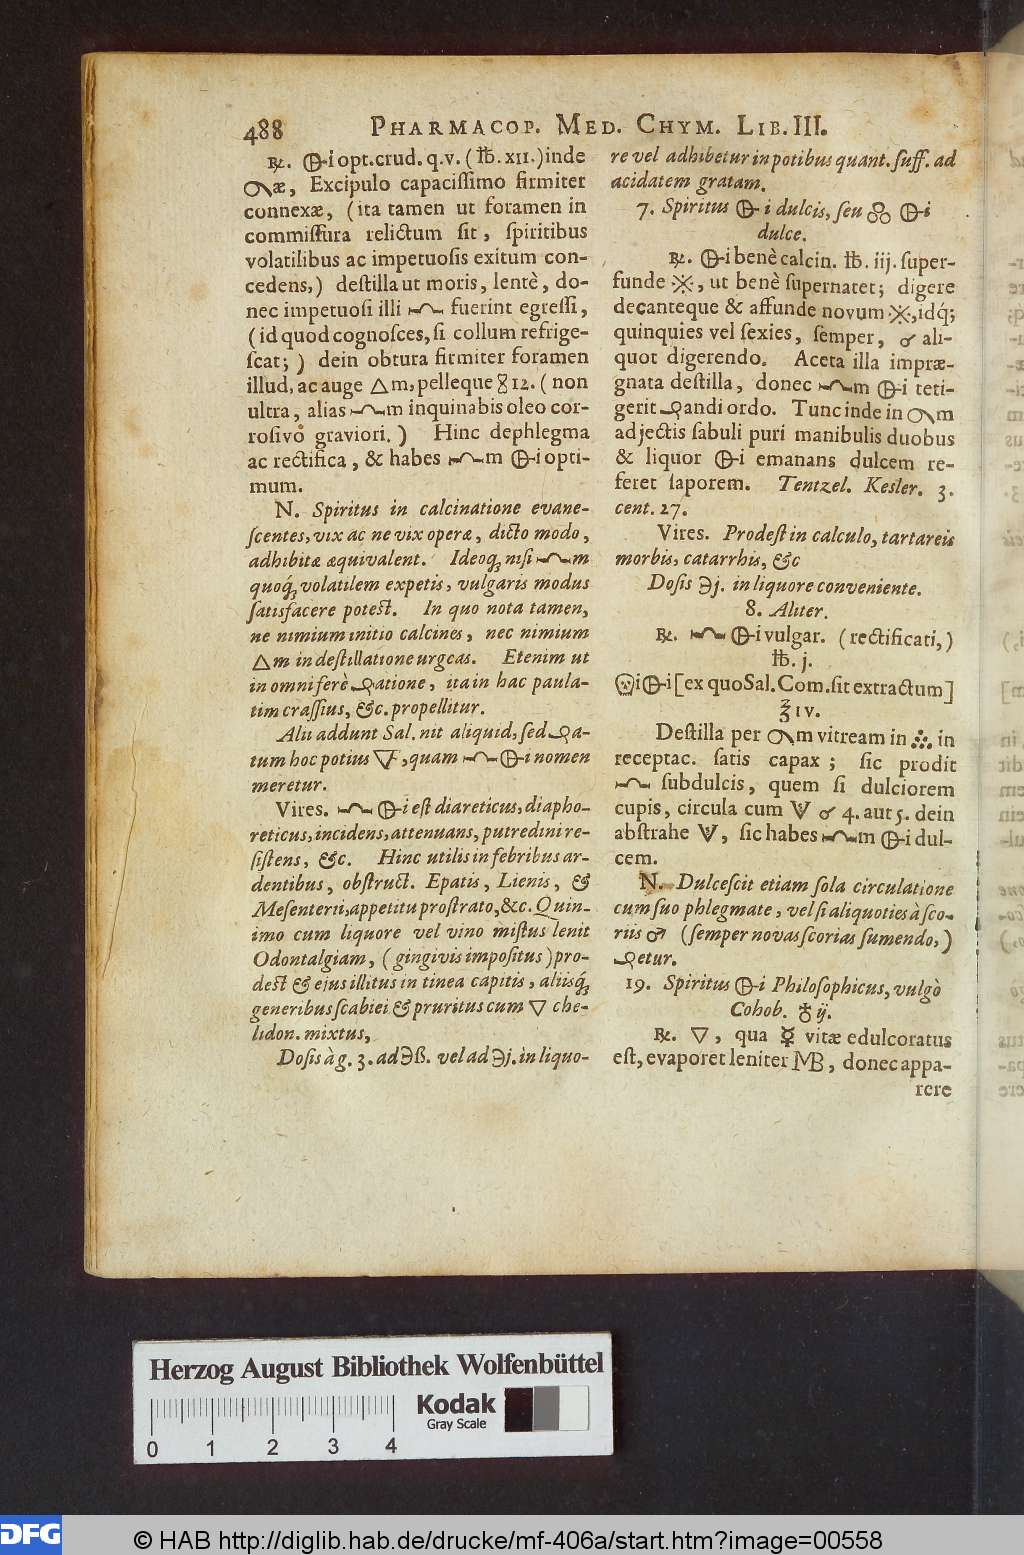 488 PHARMACOP. MED. CHYM. LIB. III.
℞. 🜖-i opt. crud. q.v. (℔. XII.) inde
æ, Excipulo capacissimo firmiter
connexæ, (ita tamen ut foramen in
commissura relictum sit, spiritibus
volatilibus ac impetuosis exitum con-
cedens,) destilla ut moris, lentè, do-
nec impetuosi illi fuerint egressi,
(id quod cognosces, si collum refrige-
scat;) dein obtura firmiter foramen
illud, ac auge △m, pelleque 12. (non
ultra, alias m inquinabis oleo cor-
rosivo graviori.) Hinc dephlegma
ac rectifica, & habes m 🜖-i opti-
mum.
N. Spiritus in calcinatione evane-
scentes, vix ac ne vix operæ, dicto modo,
adhibitæ æquivalent. Ideoq́; nisi m
quoq́; volatilem expetis, vulgaris modus
satisfacere potest. In quo nota tamen,
ne nimium initio calcines, nec nimium
△m in destillatione urgeas. Etenim ut
in omni ferè atione, ita in hac paula-
tim crassius, &c. propellitur.
Alii addunt Sal. nit aliquid, sed a-
tum hoc potius , quam 🜖-i nomen
meretur.
Vires. 🜖-i est diareticus, diapho-
reticus, incidens, attenuans, putredini re-
sistens, &c. Hinc utilis in febribus ar-
dentibus, obstruct. Epatis, Lienis, &
Mesenterii, appetitu prostrato, &c. Quin-
imo cum liquore vel vino mistus lenit
Odontalgiam, (gingivis impositus) pro-
dest & ejus illitus in tinea capitis, aliisq́;
generibus scabiei & pruritus cum ▽ che-
lidon. mixtus,
Dosis à g. 3. ad ℈ß. vel ad ℈j. in liquo-
re vel adhibetur in potibus quant. suff. ad
acidatem gratam.
7. Spiritus 🜖-i dulcis, seu 🜖-i
dulce.
℞. 🜖-i benè calcin. ℔. iij. super-
funde ※, ut benè supernatet; digere
decanteque & affunde novum ※, idq́;
quinquies vel sexies, semper, ali-
quot digerendo. Aceta illa impræ-
gnata destilla, donec m 🜖-i teti-
gerit andi ordo. Tunc inde in m
adjectis sabuli puri manibulis duobus
& liquor 🜖-i emanans dulcem re-
feret saporem. Tentzel. Kesler. 3.
cent. 27.
Vires. Prodest in calculo, tartareis
morbis, catarrhis, &c
Dosis ℈j. in liquore conveniente.
8. Aliter.
℞. 🜖-i vulgar. (rectificati,)
℔. j.
i 🜖-i [ex quo Sal. Com. sit extractum]
℥ IV.
Destilla per m vitream in in
receptac. satis capax; sic prodit
subdulcis, quem si dulciorem
cupis, circula cum 4. aut 5. dein
abstrahe , sic habes m 🜖-i dul-
cem.
N. Dulcescit etiam sola circulatione
cum suo phlegmate, vel si aliquoties à sco-
riis ♂ (semper novas scorias sumendo,)
etur.
19. Spiritus 🜖-i Philosophicus, vulgò
Cohob. ♁ ij.
℞. ▽, qua ☿ vitæ edulcoratus
est, evaporet leniter MB, donec appa-
rere
Herzog August Bibliothek Wolfenbüttel
Kodak
Gray Scale
0 1 2 3 4
DFG © HAB http://diglib.hab.de/drucke/mf-406a/start.htm?image=00558